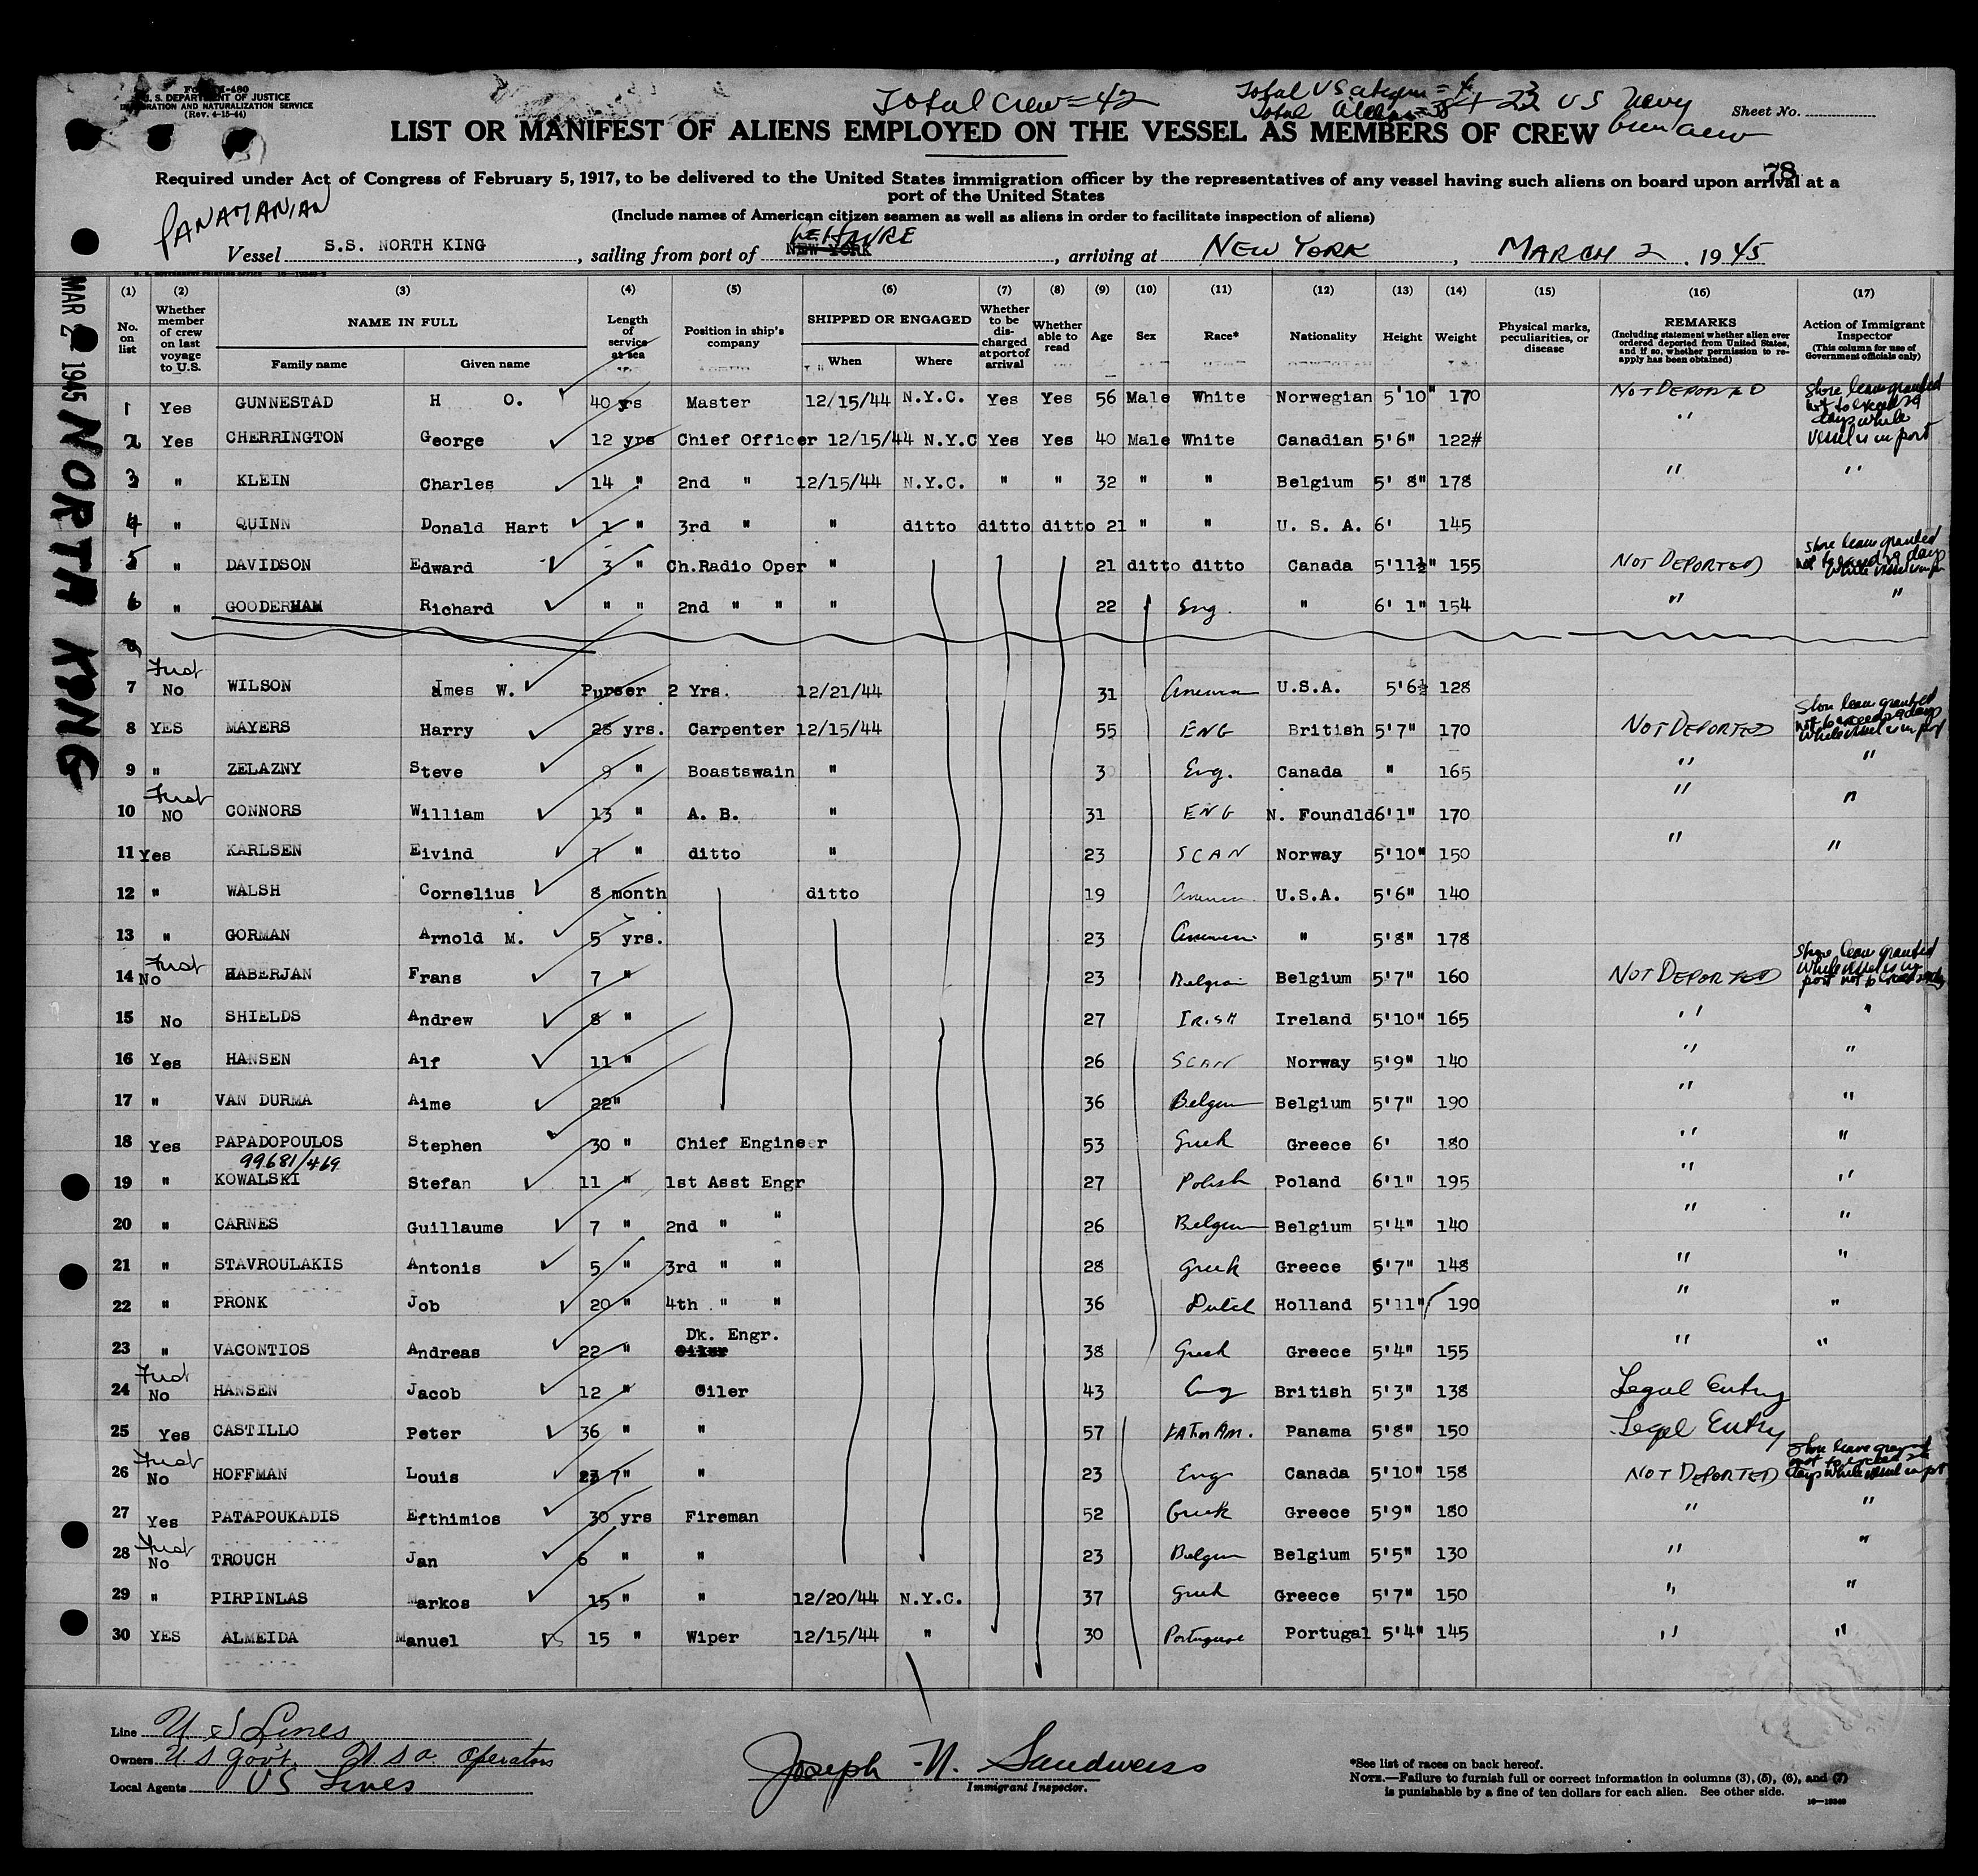 Form I-480
U. S. DEPARTMENT OF JUSTICE
IMMIGRATION AND NATURALIZATION SERVICE
(Rev. 4-15-44)
Total Crew = 42
Total US citizens = 4
Total Aliens = 38 + 23 US Navy
Gun crew
Sheet No.
LIST OR MANIFEST OF ALIENS EMPLOYED ON THE VESSEL AS MEMBERS OF CREW
78
Required under Act of Congress of February 5, 1917, to be delivered to the United States immigration officer by the representatives of any vessel having such aliens on board upon arrival at a
port of the United States
(Include names of American citizen seamen as well as aliens in order to facilitate inspection of aliens)
PANAMANIAN
Vessel S.S. NORTH KING , sailing from port of NEW YORK LE HAVRE , arriving at NEW YORK , MARCH 2 , 1945
MAR 2 1945 NORTH KING
(1) (2) (3) (4) (5) (6) (7) (8) (9) (10) (11) (12) (13) (14) (15) (16) (17)
No. on list
Whether member of crew on last voyage to U.S.
NAME IN FULL
Family name
Given name
Length of service at sea
Position in ship's company
SHIPPED OR ENGAGED
When
Where
Whether to be discharged at port of arrival
Whether able to read
Age
Sex
Race*
Nationality
Height
Weight
Physical marks, peculiarities, or disease
REMARKS
(Including statement whether alien ever ordered deported from United States, and if so, whether permission to reapply has been obtained)
Action of Immigrant Inspector
(This column for use of Government officials only)
1 Yes GUNNESTAD H O. 40 yrs Master 12/15/44 N.Y.C. Yes Yes 56 Male White Norwegian 5'10" 170 NOT DEPORTED Shore leave granted not to exceed 29 days while vessel is in port
2 Yes CHERRINGTON George 12 yrs Chief Officer 12/15/44 N.Y.C Yes Yes 40 Male White Canadian 5'6" 122# "
3 " KLEIN Charles 14 " 2nd " 12/15/44 N.Y.C. " " 32 " " Belgium 5' 8" 178 " "
4 " QUINN Donald Hart 1 " 3rd " " ditto ditto ditto 21 " " U. S. A. 6' 145
5 " DAVIDSON Edward 3 " Ch.Radio Oper " 21 ditto ditto Canada 5'11½" 155 NOT DEPORTED Shore leave granted not to exceed 29 days while vessel is in port
6 " GOODERHAM Richard " " 2nd " " " 22 Eng. " 6' 1" 154 " "
7 First No WILSON James W. Purser 2 Yrs. 12/21/44 31 American U.S.A. 5'6½ 128
8 YES MAYERS Harry 28 yrs. Carpenter 12/15/44 55 ENG British 5'7" 170 NOT DEPORTED Shore leave granted not to exceed 29 days while vessel is in port
9 " ZELAZNY Steve 9 " Boastswain " 30 Eng. Canada " 165 " "
10 First NO CONNORS William 13 " A. B. " 31 ENG N. Foundld 6'1" 170 " "
11 Yes KARLSEN Eivind 7 " ditto " 23 SCAN Norway 5'10" 150 " "
12 " WALSH Cornelius 8 month ditto 19 American U.S.A. 5'6" 140
13 " GORMAN Arnold M. 5 yrs. 23 American " 5'8" 178
14 First No HABERJAN Frans 7 " 23 Belgian Belgium 5'7" 160 NOT DEPORTED Shore leave granted while vessel is in port not to exceed 29 days
15 No SHIELDS Andrew 8 " 27 IRISH Ireland 5'10" 165 " "
16 Yes HANSEN Alf 11 " 26 SCAN Norway 5'9" 140 " "
17 " VAN DURMA Aime 22" 36 Belgian Belgium 5'7" 190 " "
18 Yes PAPADOPOULOS Stephen 30 " Chief Engineer 53 Greek Greece 6' 180 " "
99681/469
19 " KOWALSKI Stefan 11 " 1st Asst Engr 27 Polish Poland 6'1" 195 " "
20 " CARNES Guillaume 7 " 2nd " " 26 Belgian Belgium 5'4" 140 " "
21 " STAVROULAKIS Antonis 5 " 3rd " " 28 Greek Greece 5'7" 148 " "
22 " PRONK Job 20 " 4th " " 36 Dutch Holland 5'11" 190 " "
23 " VACONTIOS Andreas 22 " Dk. Engr. Oiler 38 Greek Greece 5'4" 155 " "
24 First No HANSEN Jacob 12 " Oiler 43 Eng British 5'3" 138 Legal Entry
25 Yes CASTILLO Peter 36 " " 57 LATIN AM. Panama 5'8" 150 Legal Entry
26 First No HOFFMAN Louis 23 7" " 23 Eng Canada 5'10" 158 NOT DEPORTED Shore leave granted not to exceed 29 days while vessel in port
27 Yes PATAPOUKADIS Efthimios 30 yrs Fireman 52 Greek Greece 5'9" 180 " "
28 First No TROUCH Jan 6 " " 23 Belgian Belgium 5'5" 130 " "
29 " PIRPINLAS Markos 15 " " 12/20/44 N.Y.C. 37 Greek Greece 5'7" 150 " "
30 YES ALMEIDA Manuel 15 " Wiper 12/15/44 " 30 Portuguese Portugal 5'4" 145 " "
Line U S Lines
Owners U.S Gov't. U S a Operators
Local Agents US Lines
Joseph N. Sandweiss
Immigrant Inspector.
*See list of races on back hereof.
NOTE.—Failure to furnish full or correct information in columns (3), (5), (6), and (7)
is punishable by a fine of ten dollars for each alien. See other side.